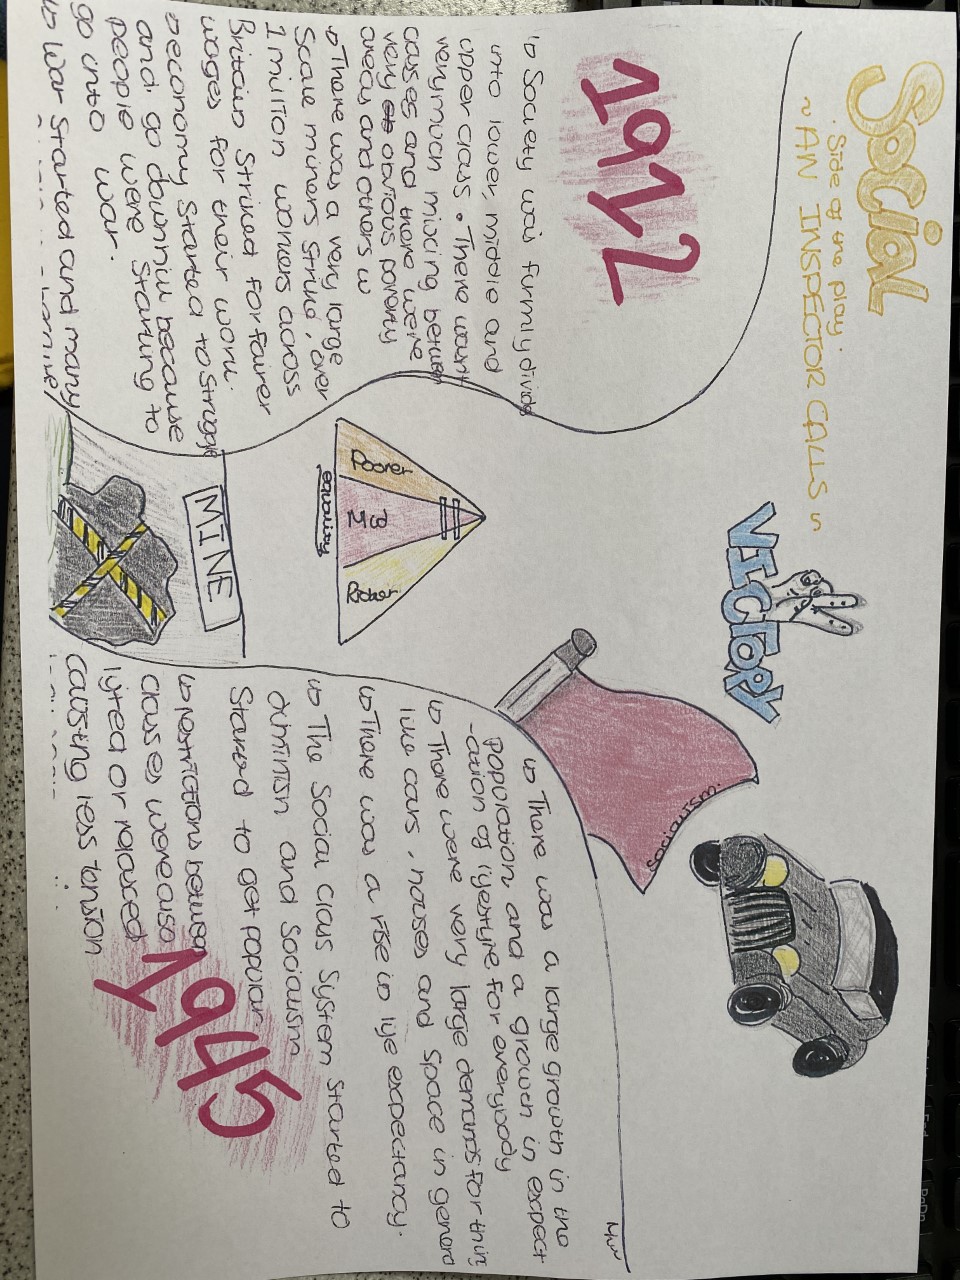 Social
· Side of the play ·
~ AN INSPECTOR CALLS ~
1912
↳ Society was firmly divide
into lower, middle and
upper class. There wasn't
very much mixing between
casses and there were
very obvious poverty
areas and others w
↳ There was a very large
Scale miners strike, over
1 million workers across
Britain Striked for fairer
wages for their work.
↳ economy Started to struggle
and go downhill because
people were Starting to
go into war.
↳ War Started and many
MINE
Poorer
Richer
equality
VICTORY
Socialism.
↳ There was a large growth in the
Population, and a growth in expect
-cation of lifestyle for everybody
↳ There were very large demands for thin
like cars, houses and Space in genera
↳ There was a rise in life expectancy.
↳ The Social class System Started to
diminish and Socialism
Started to get popular
↳ restrictions between
classes were also
lifted or relaxed
causing less tension
1945